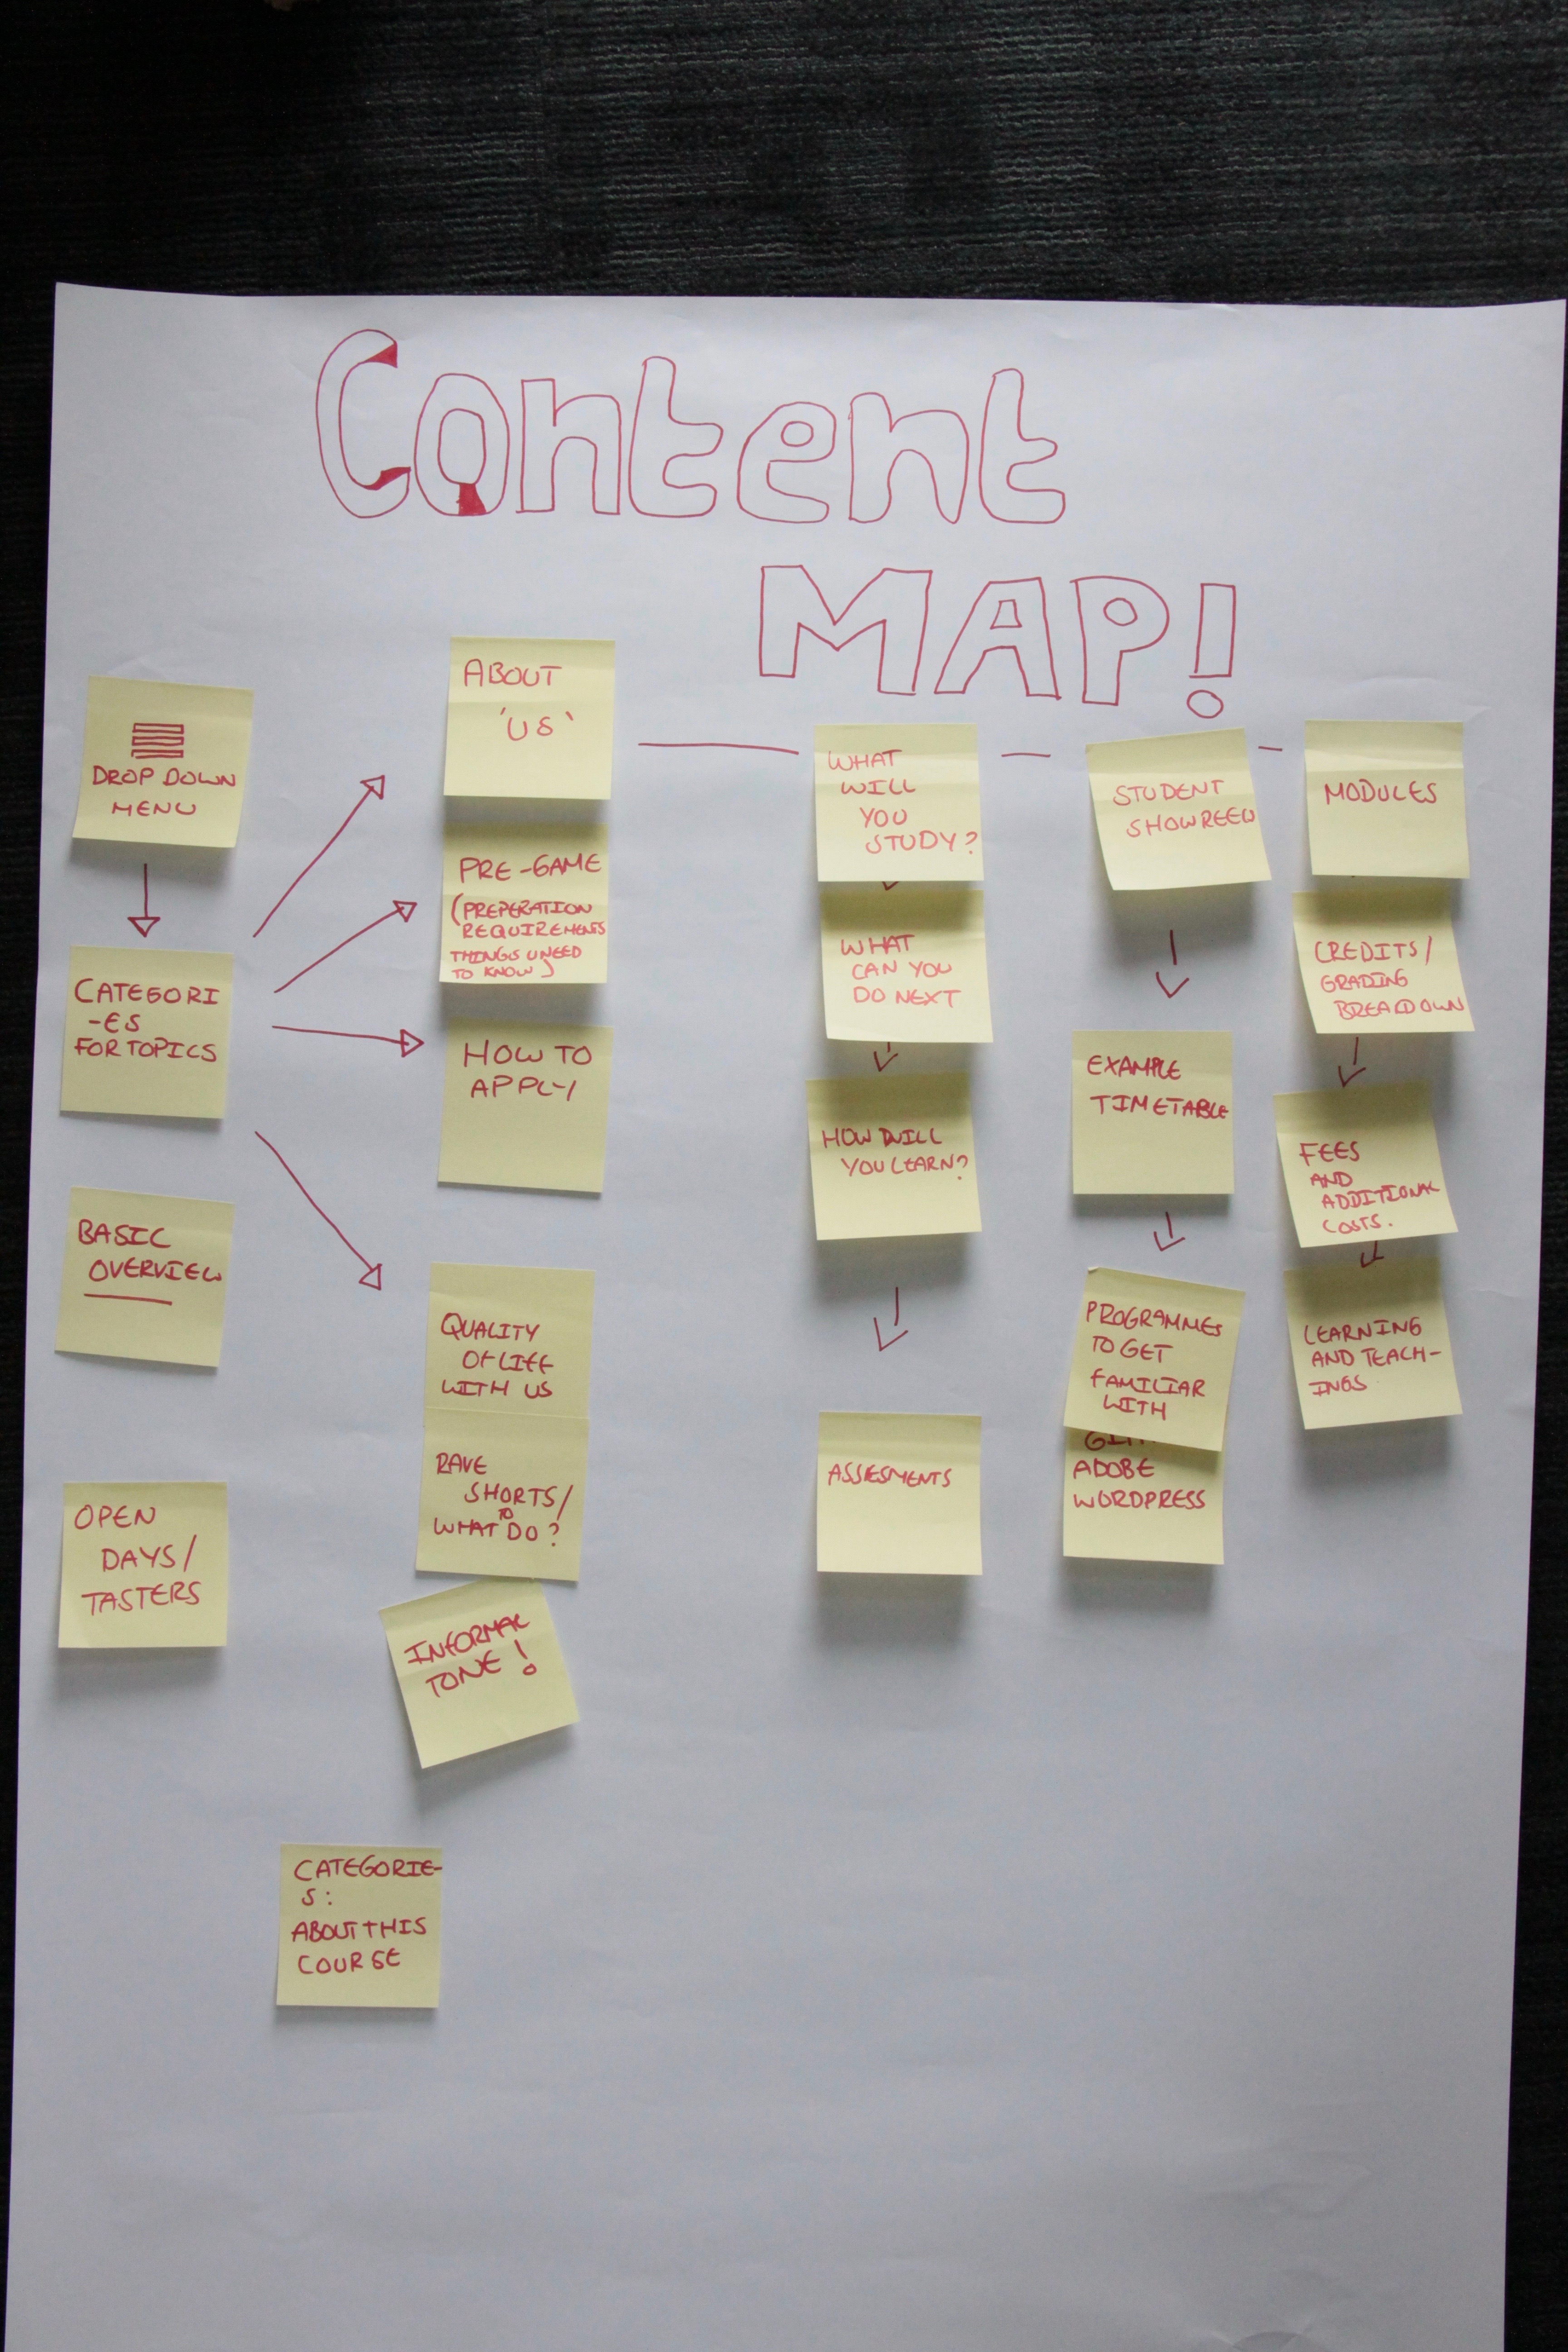 Content
MAP!
DROP DOWN
MENU
CATEGORI
-ES
FOR TOPICS
BASIC
OVERVIEW
OPEN
DAYS/
TASTERS
ABOUT
'US'
PRE-GAME
(PREPERATION
REQUIREMENTS
THINGS U NEED
TO KNOW)
HOW TO
APPLY
QUALITY
OF LIFE
WITH US
RAVE
SHORTS/
TO
WHAT DO?
INFORMAL
TONE!
CATEGORIE-
S:
ABOUT THIS
COURSE
WHAT
WILL
YOU
STUDY?
WHAT
CAN YOU
DO NEXT
HOW WILL
YOU LEARN?
ASSESMENTS
STUDENT
SHOWREEL
EXAMPLE
TIMETABLE
PROGRAMMES
TO GET
FAMILIAR
WITH
ADOBE
WORDPRESS
MODULES
CREDITS/
GRADING
BREAKDOWN
FEES
AND
ADDITIONAL
COSTS.
LEARNING
AND TEACH-
INGS